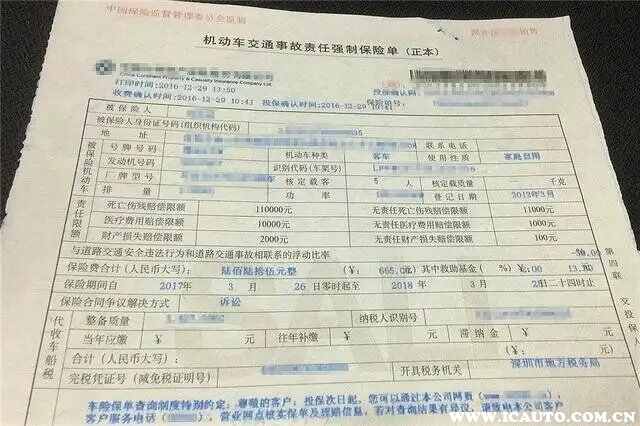 中国保险监督管理委员会监制
机动车交通事故责任强制保险单（正本）
China Continent Property & Casualty Insurance Company Ltd.
打印时间:2016-12-29 13:50
收费确认时间:2016-12-29 10:43 投保确认时间:2016-12-29
保险单号:
被保险人
被保险人身份证号码(组织机构代码)
地址 联系电话
被保险机动车
号牌号码 机动车种类 客车 使用性质 家庭自用
发动机号码 识别代码(车架号)
厂牌型号 核定载客 5 人 核定载质量 千克
排量 功率 登记日期
责任限额
死亡伤残赔偿限额 110000元 无责任死亡伤残赔偿限额 11000元
医疗费用赔偿限额 10000元 无责任医疗费用赔偿限额 1000元
财产损失赔偿限额 2000元 无责任财产损失赔偿限额 100元
与道路交通安全违法行为和道路交通事故相联系的浮动比率
保险费合计(人民币大写): 陆佰陆拾伍元整 (¥: 665.00 其中救助基金( %)¥:
保险期间自 2017 年 3 月 26 日零时起至 2018 年 3 月 二十四时止
保险合同争议解决方式 诉讼
代收车船税
整备质量 纳税人识别号
当年应缴 ¥: 元 往年补缴 ¥: 元 滞纳金 ¥: 元
合计(人民币大写): (¥: 元)
完税凭证号(减免税证明号) 开具税务机关 深圳市地方税务局
车险保单查询制度特别约定: 尊敬的客户: 投保次日起, 您可以通过本公司网页
客户服务电话 营业网点核实保单及理赔信息, 若对查询结果有异议, 请致电本公司客
第四联
交投保人
WWW.ICAUTO.COM.CN